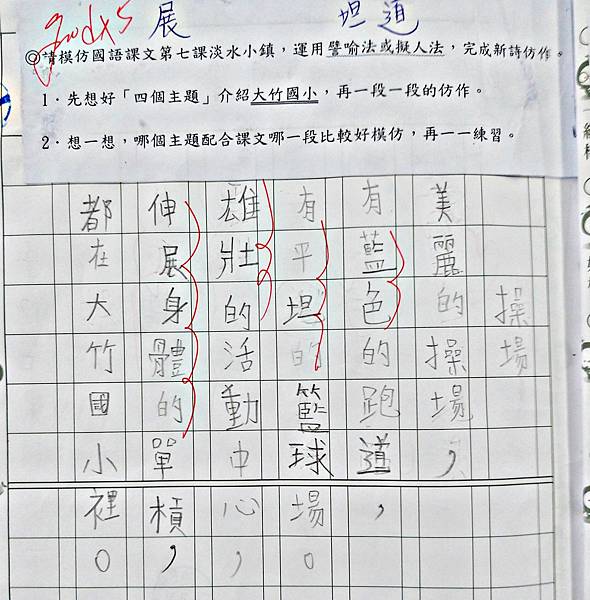 Good x5
展 坦 道
◎請模仿國語課文第七課淡水小鎮，運用譬喻法或擬人法，完成新詩仿作。
1．先想好「四個主題」介紹大竹國小，再一段一段的仿作。
2．想一想，哪個主題配合課文哪一段比較好模仿，再一一練習。
操場
美麗的操場，
有藍色的跑道，
有平坦的籃球場。
雄壯的活動中心，
伸展身體的單槓，
都在大竹國小裡。